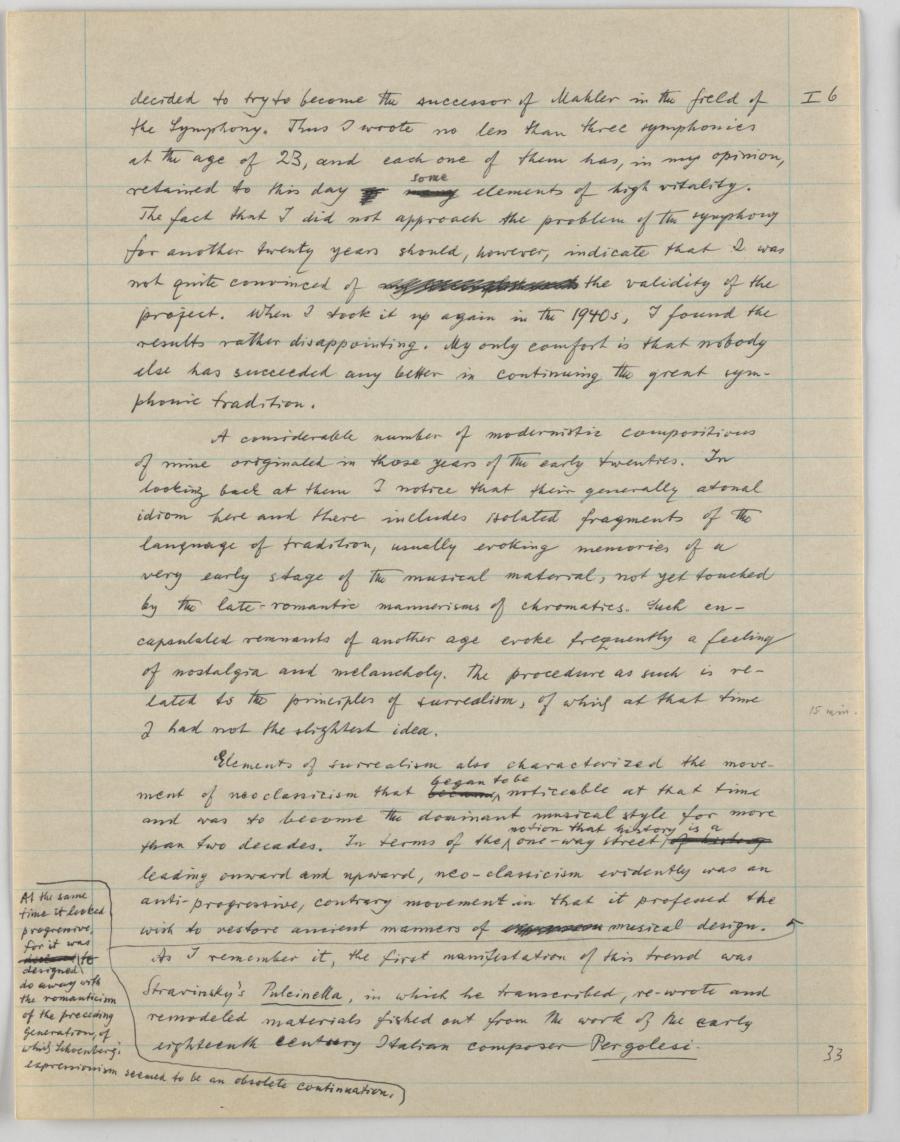 I 6
decided to try to become the successor of Mahler in the field of
the Symphony. Thus I wrote no less than three symphonies
at the age of 23, and each one of them has, in my opinion,
some
retained to this day many elements of high vitality.
The fact that I did not approach the problem of the symphony
for another twenty years should, however, indicate that I was
not quite convinced of the validity of the
project. When I took it up again in the 1940s, I found the
results rather disappointing. My only comfort is that nobody
else has succeeded any better in continuing the great sym-
phonic tradition.
A considerable number of modernistic compositions
of mine originated in those years of the early twenties. In
looking back at them I notice that their generally atonal
idiom here and there includes isolated fragments of the
language of tradition, usually evoking memories of a
very early stage of the musical material, not yet touched
by the late-romantic mannerisms of chromatics. Such en-
capsulated remnants of another age evoke frequently a feeling
of nostalgia and melancholy. The procedure as such is re-
lated to the principles of surrealism, of which at that time
15 min.
I had not the slightest idea.
Elements of surrealism also characterized the move-
began to be
ment of neoclassicism that became noticeable at that time
and was to become the dominant musical style for more
notion that history is a
than two decades. In terms of the one-way street of history
leading onward and upward, neo-classicism evidently was an
anti-progressive, contrary movement in that it professed the
wish to restore ancient manners of musical design.
As I remember it, the first manifestation of this trend was
Stravinsky's Pulcinella, in which he transcribed, re-wrote and
remodeled materials fished out from the work of the early
eighteenth century Italian composer Pergolesi.
At the same
time it looked
progressive,
for it was
to
designed
do away with
the romanticism
of the preceding
generation, of
which Schoenberg's
expressionism seemed to be an obsolete continuation.
33